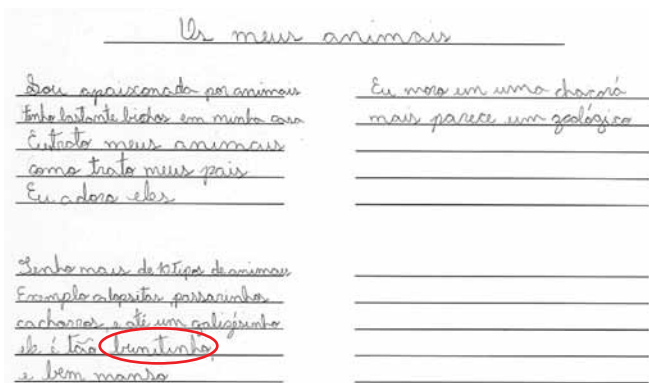 Os meus animais
Sou apaixonada por animais
tenho bastante bichos em minha casa
Eu trato meus animais
como trato meus pais
Eu adoro eles
Tenho mais de 10 tipos de animais
Exemplo calopsitas, passarinhos
cachorros, e até um galizésinho
ele é tão bunitinho
e bem manso
Eu moro em uma chacorá
mais parece um zoológico